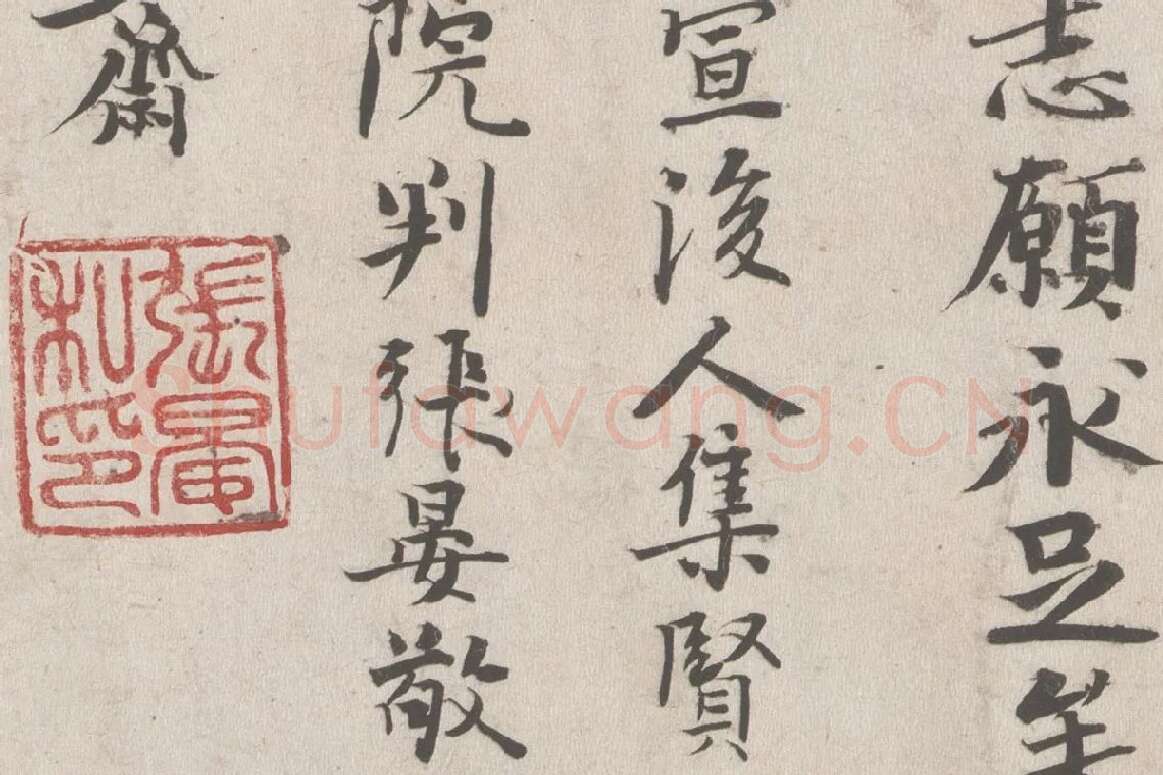 志願永足矣
宣後人集賢
院判張晏敬
齋
張晏私印
shufawang.CN